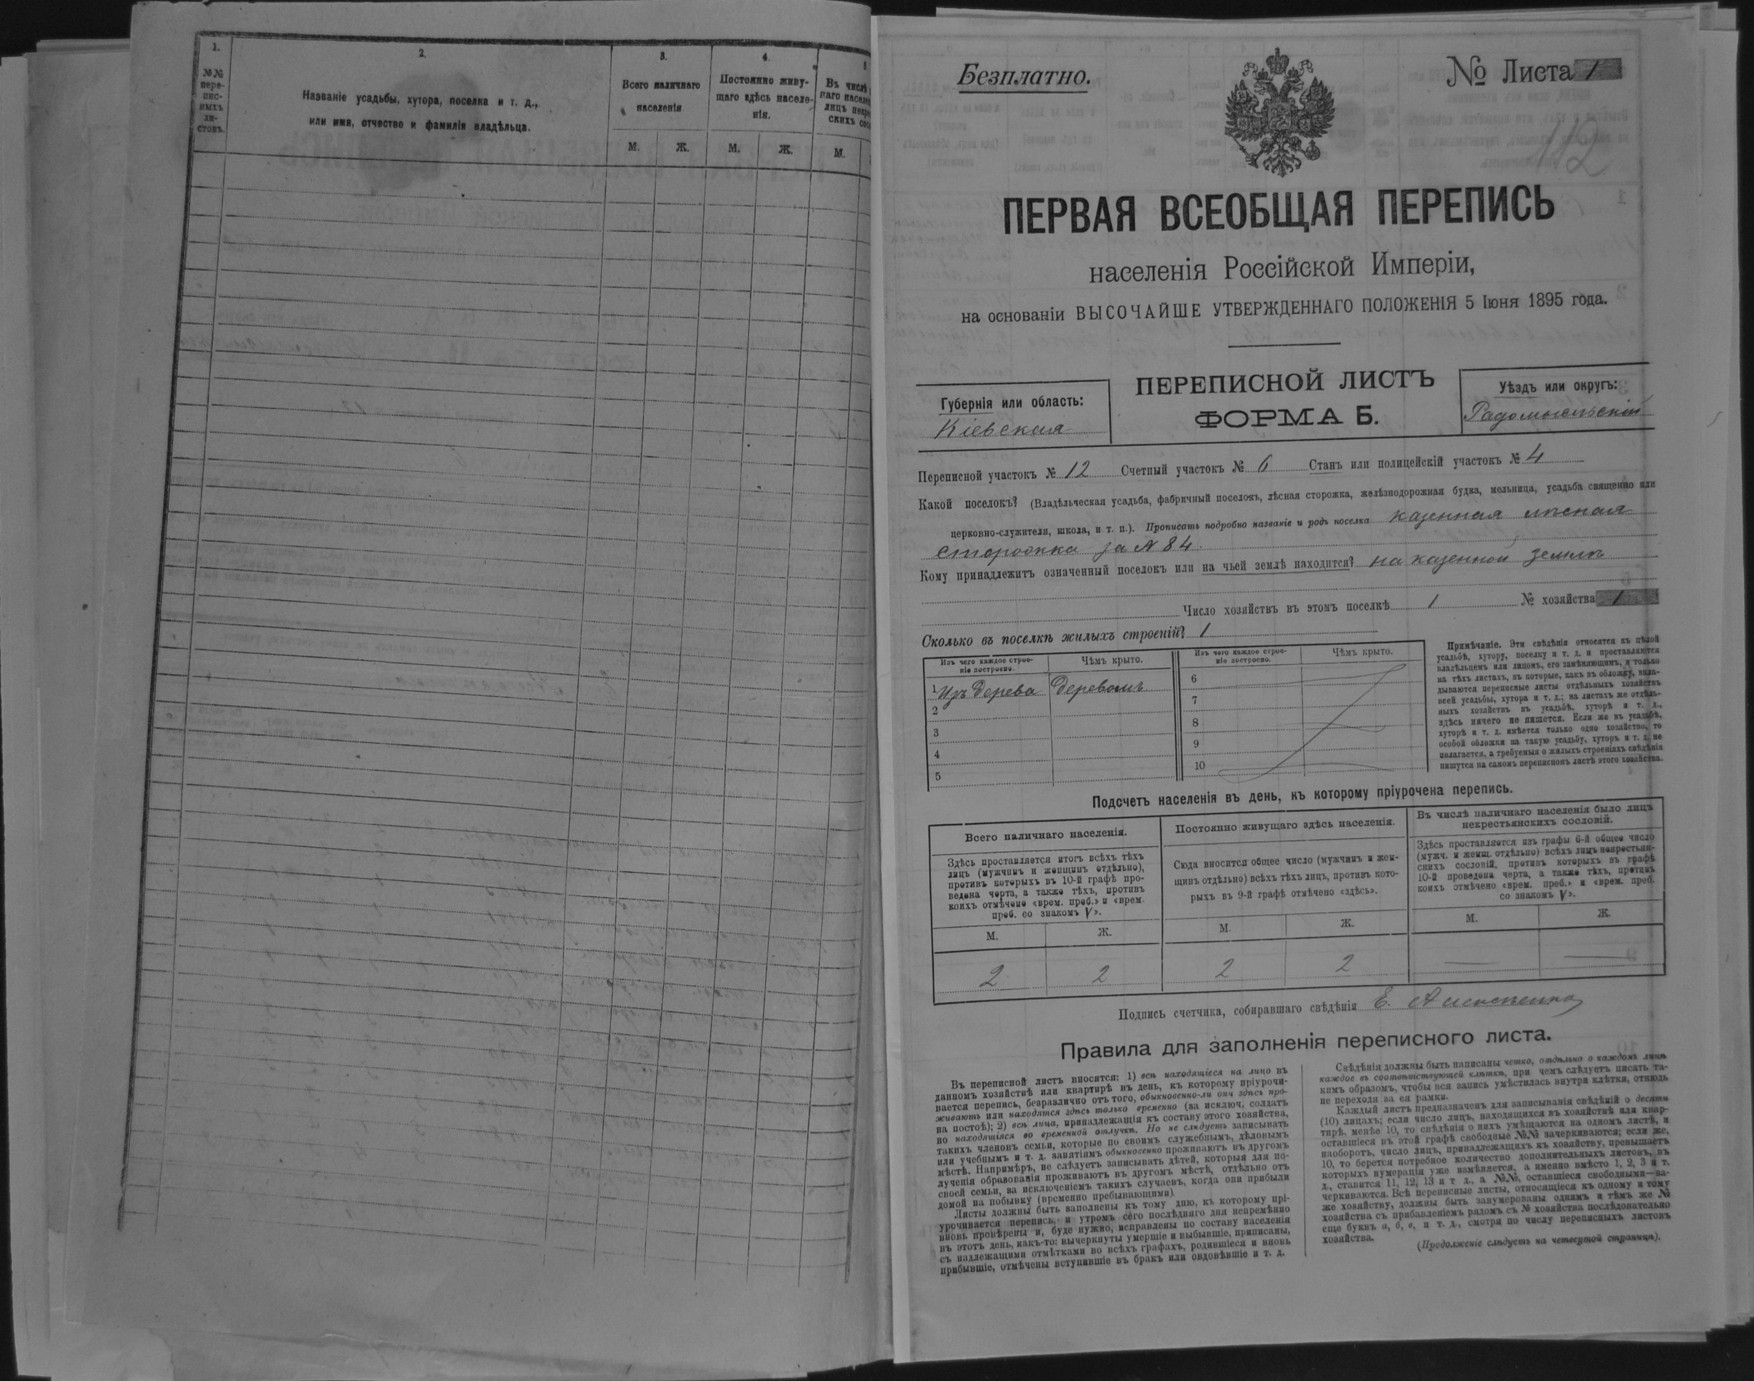 1.
2.
3.
4.
№№ пере-
пис-
ныхъ
ли-
стовъ.
Названіе усадьбы, хутора, поселка и т. д.,
или имя, отчество и фамилія владѣльца.
Всего наличнаго
населенія
Постоянно живу-
щаго здѣсь населе-
нія.
Въ числѣ
М.
Ж.
М.
Ж.
М.
Безплатно.
№ Листа 1
112
ПЕРВАЯ ВСЕОБЩАЯ ПЕРЕПИСЬ
населенія Россійской Имперіи,
на основаніи ВЫСОЧАЙШЕ УТВЕРЖДЕННАГО ПОЛОЖЕНІЯ 5 Іюня 1895 года.
Губернія или область:
Кіевская
ПЕРЕПИСНОЙ ЛИСТЪ
ФОРМА Б.
Уѣздъ или округъ:
Радомысльскій
Переписной участокъ № 12 Счетный участокъ № 6 Станъ или полицейскій участок № 4
Какой поселокъ? (Владѣльческая усадьба, фабричный поселокъ, лѣсная сторожка, желѣзнодорожная будка, мельница, усадьба священно или
церковно-служителя, школа, и т. п.). Прописать подробно названіе и родъ поселка казенная лѣсная
сторожка за № 84.
Кому принадлежитъ означенный поселокъ или на чьей землѣ находится? на казенной землѣ
Число хозяйствъ въ этомъ поселкѣ 1 № хозяйства 1
Сколько въ поселкѣ жилыхъ строеній? 1
Изъ чего каждое строе-
ніе построено.
Чѣмъ крыто.
Изъ чего каждое строе-
ніе построено.
Чѣмъ крыто.
1 Изъ дерева Деревомъ
2
3
4
5
6
7
8
9
10
Примѣчаніе. Эти свѣдѣнія относятся къ цѣлой
усадьбѣ, хутору, поселку и т. д. и проставляются
владѣльцемъ или лицомъ, его замѣняющимъ, и только
на тѣхъ листахъ, въ которые, какъ въ обложку, вкла-
дываются переписные листы отдѣльныхъ хозяйствъ
всей усадьбы, хутора и т. д.; на листахъ же отдѣль-
ныхъ хозяйствъ въ усадьбѣ, хуторѣ и т. д.,
здѣсь ничего не пишется. Если же въ усадьбѣ,
хуторѣ и т. д. имѣется только одно хозяйство, то
особой обложки на такую усадьбу, хуторъ и т. д. не
полагается, а требуемыя о жилыхъ строеніяхъ свѣдѣнія
пишутся на самомъ переписномъ листѣ этого хозяйства.
Подсчетъ населенія въ день, къ которому пріурочена перепись.
Всего наличнаго населенія.
Здѣсь проставляется итогъ всѣхъ тѣхъ
лицъ (мужчинъ и женщинъ отдѣльно),
противъ которыхъ въ 10-й графѣ про-
ведена черта, а также тѣхъ, противъ
коихъ отмѣчено «врем. преб.» и «врем.
преб. со знакомъ V».
Постоянно живущаго здѣсь населенія.
Сюда вносится общее число (мужчинъ и жен-
щинъ отдѣльно) всѣхъ тѣхъ лицъ, противъ кото-
рыхъ въ 9-й графѣ отмѣчено «здѣсь».
Въ числѣ наличнаго населенія было лицъ
некрестьянскихъ сословій.
Здѣсь проставляется изъ графы 6-й общее число
(мужч. и женщ. отдѣльно) всѣхъ лицъ некрестьян-
скихъ сословій, противъ которыхъ въ графѣ
10-й проведена черта, а также тѣхъ, противъ
коихъ отмѣчено «врем. преб.» и «врем. преб.
со знакомъ V».
М. Ж. М. Ж. М. Ж.
2 2 2 2 — —
Подпись счетчика, собиравшаго свѣдѣнія Е.
Правила для заполненія переписного листа.
Въ переписной листъ вносятся: 1) всѣ находящіеся на лицо въ
данномъ хозяйствѣ или квартирѣ въ день, къ которому пріурочи-
вается перепись, безразлично отъ того, обыкновенно-ли они здѣсь про-
живаютъ или находятся здѣсь только временно (за исключ. солдатъ
на постоѣ); 2) всѣ лица, принадлежащія къ составу этого хозяйства,
но находящіяся во временной отлучкѣ. Но не слѣдуетъ записывать
такихъ членовъ семьи, которые по своимъ служебнымъ, дѣловымъ
или учебнымъ и т. д. занятіямъ обыкновенно проживаютъ въ другомъ
мѣстѣ. Напримѣръ, не слѣдуетъ записывать дѣтей, которыя для по-
лученія образованія проживаютъ въ другомъ мѣстѣ, отдѣльно отъ
своей семьи, за исключеніемъ такихъ случаевъ, когда они прибыли
домой на побывку (временно пребывающими).
Листы должны быть заполнены къ тому дню, къ которому прі-
урочивается перепись, и утромъ сего послѣдняго дня непремѣнно
вновь провѣрены и, буде нужно, исправлены по составу населенія
въ этотъ день, какъ-то: вычеркнуты умершіе и выбывшіе, приписаны,
съ надлежащими отмѣтками во всѣхъ графахъ, родившіеся и вновь
прибывшіе, отмѣчены вступившіе въ бракъ или овдовѣвшіе и т. д.
Свѣдѣнія должны быть написаны четко, отдѣльно о каждомъ лицѣ
каждое въ соотвѣтствующей клѣткѣ, при чемъ слѣдуетъ писать та-
кимъ образомъ, чтобы вся запись умѣстилась внутри клѣтки, отнюдь
не переходя за ея рамки.
Каждый листъ предназначенъ для записыванія свѣдѣній о десяти
(10) лицахъ; если число лицъ, находящихся въ хозяйствѣ или квар-
тирѣ, менѣе 10, то свѣдѣнія о нихъ умѣщаются на одномъ листѣ, а
оставшіеся въ этой графѣ свободные №№ зачеркиваются; если же,
наоборотъ, число лицъ, принадлежащихъ къ хозяйству, превышаетъ
10, то берется потребное количество дополнительныхъ листовъ, въ
которыхъ нумерація уже измѣняется, а именно вмѣсто 1, 2, 3 и т.
д., ставится 11, 12, 13 и т. д., а №№, оставшіеся свободными—за-
черкиваются. Всѣ переписные листы, относящіеся къ одному и тому
же хозяйству, должны быть занумерованы однимъ и тѣмъ же №
хозяйства съ прибавленіемъ рядомъ съ № хозяйства послѣдовательно
еще буквъ а, б, в, и т. д., смотря по числу переписныхъ листовъ
хозяйства.
(Продолженіе слѣдуетъ на четвертой страницѣ).